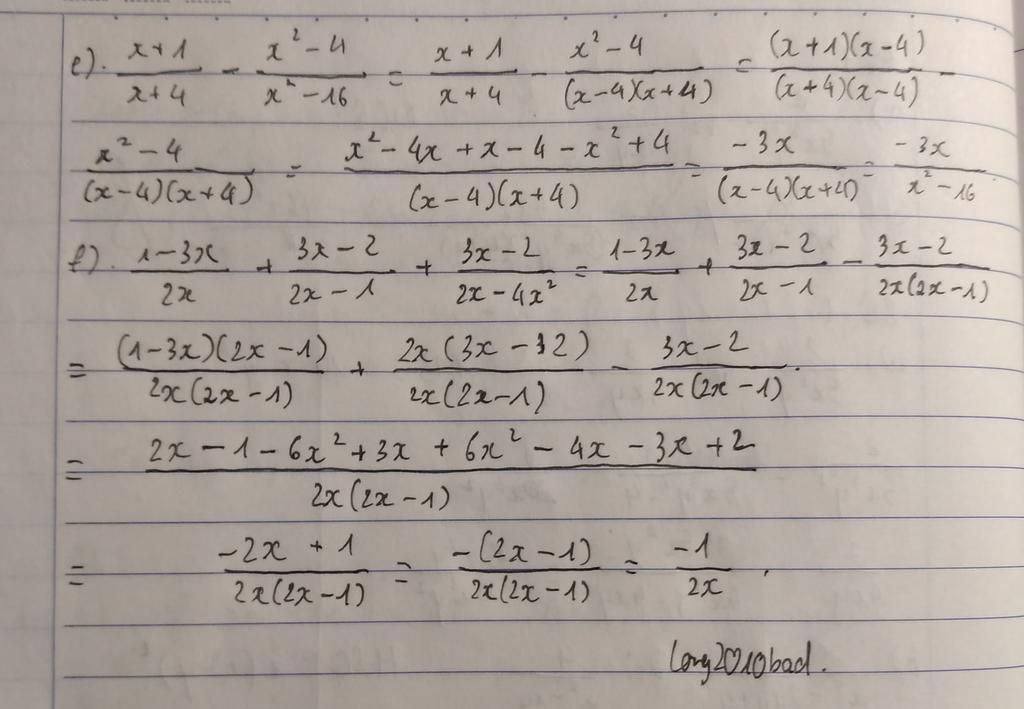 e). \frac{x+1}{x+4} - \frac{x^2-4}{x^2-16} = \frac{x+1}{x+4} - \frac{x^2-4}{(x-4)(x+4)} = \frac{(x+1)(x-4)}{(x+4)(x-4)} -
\frac{x^2-4}{(x-4)(x+4)} = \frac{x^2-4x+x-4-x^2+4}{(x-4)(x+4)} = \frac{-3x}{(x-4)(x+4)} = \frac{-3x}{x^2-16}.
f). \frac{1-3x}{2x} + \frac{3x-2}{2x-1} + \frac{3x-2}{2x-4x^2} = \frac{1-3x}{2x} + \frac{3x-2}{2x-1} - \frac{3x-2}{2x(2x-1)}
= \frac{(1-3x)(2x-1)}{2x(2x-1)} + \frac{2x(3x-2)}{2x(2x-1)} - \frac{3x-2}{2x(2x-1)}.
= \frac{2x-1-6x^2+3x+6x^2-4x-3x+2}{2x(2x-1)}
= \frac{-2x+1}{2x(2x-1)} = \frac{-(2x-1)}{2x(2x-1)} = \frac{-1}{2x}.
Long2010bad.